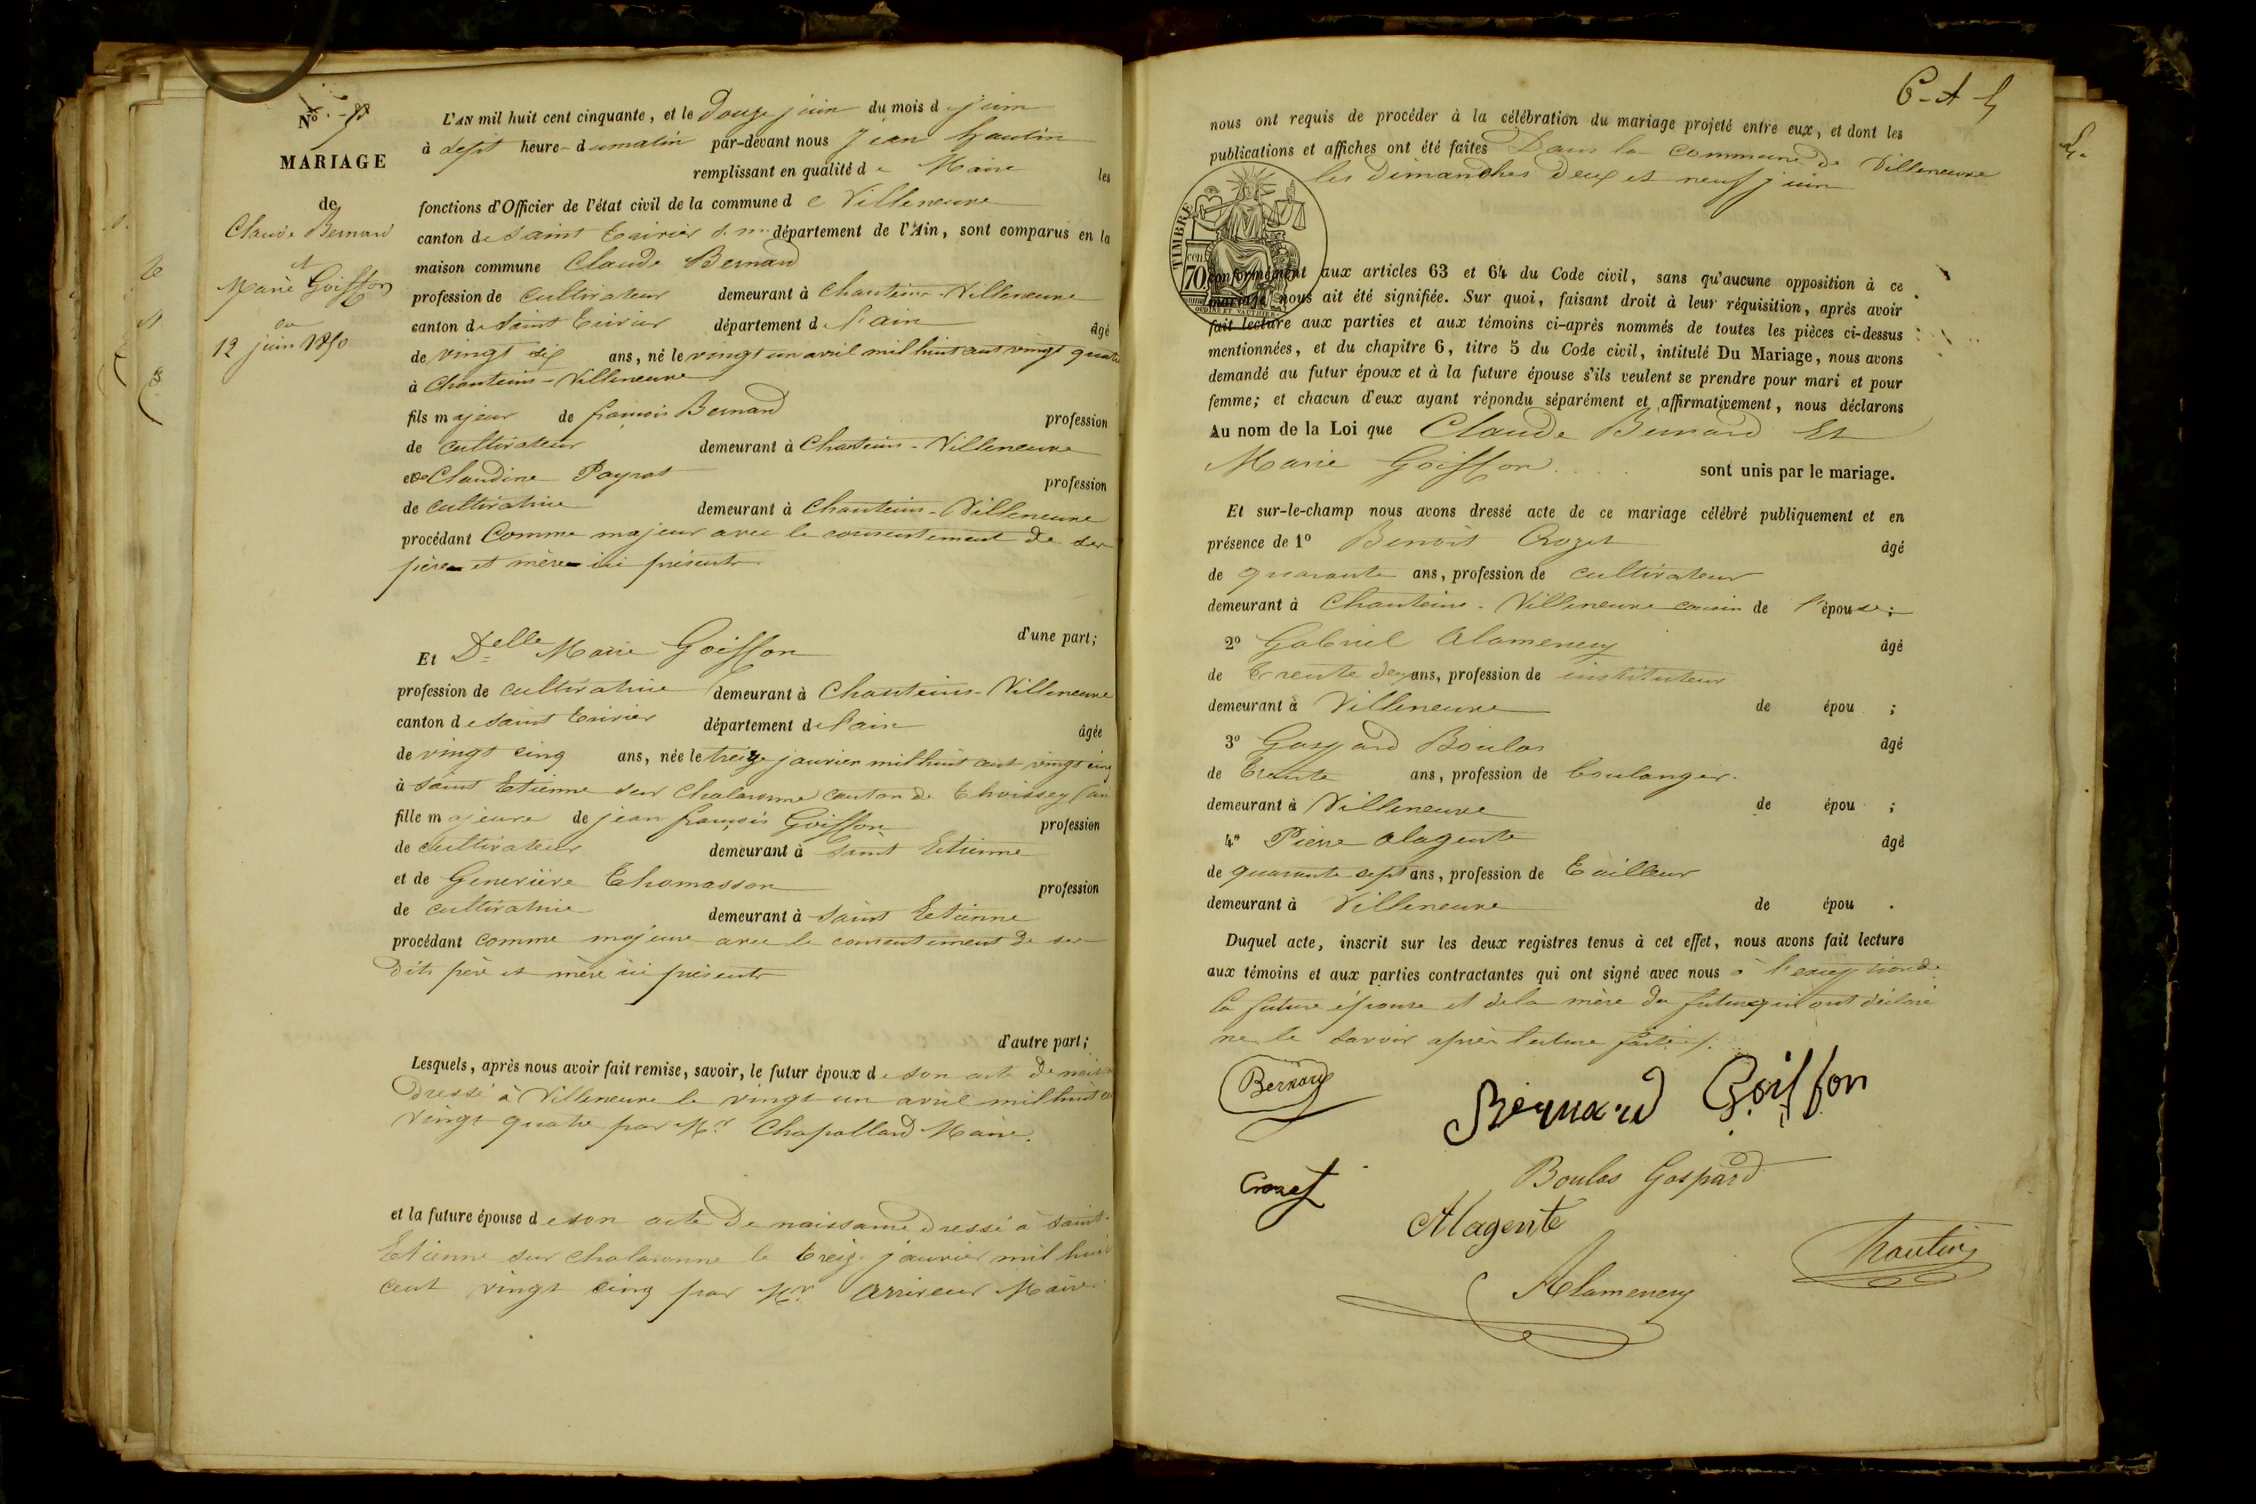 N° 7
MARIAGE
de
Claude Bernard
et
Marie Goiffon
du
12 juin 1850
L'AN mil huit cent cinquante, et le douze juin du mois de juin
à sept heure du matin par-devant nous Jean hautin
remplissant en qualité de Maire les
fonctions d'Officier de l'état civil de la commune de Villeneuve
canton de Saint Trivier s. m. département de l'Ain, sont comparus en la
maison commune Claude Bernard
profession de cultivateur demeurant à Chanteins-Villeneuve
canton de Saint Trivier département de l'ain âgé
de vingt six ans, né le vingt un avril mil huit cent vingt quatre
à Chanteins-Villeneuve
fils majeur de françois Bernard profession
de cultivateur demeurant à Chanteins-Villeneuve
et de Claudine Payrat profession
de cultivatrice demeurant à Chanteins-Villeneuve
procédant Comme majeur avec le consentement de ses
père et mère ici présents
d'une part;
Et Delle Marie Goiffon
profession de cultivatrice demeurant à Chanteins-Villeneuve
canton de Saint Trivier département de l'ain âgée
de vingt cinq ans, née le treize janvier mil huit cent vingt cinq
à Saint Etienne sur Chalaronne canton de Thoissey (ain
fille majeure de jean françois Goiffon profession
de cultivateur demeurant à Saint Etienne
et de Geneviève Thomasson profession
de cultivatrice demeurant à Saint Etienne
procédant comme majeure avec le consentement de ses
dits père et mère ici présents
d'autre part;
Lesquels, après nous avoir fait remise, savoir, le futur époux de son acte de
dressé à Villeneuve le vingt un avril mil huit
vingt quatre par Mr Chapolard Maire.
et la future épouse de son acte de naissance dressé à Saint
Etienne sur Chalaronne le treize janvier mil huit
cent vingt cinq par Mr Maire
nous ont requis de procéder à la célébration du mariage projeté entre eux, et dont les
publications et affiches ont été faites Dans la commune de Villeneuve
les Dimanches deux et neuf juin
TIMBRE
70 cent
conformément aux articles 63 et 64 du Code civil, sans qu'aucune opposition à ce
mariage nous ait été signifiée. Sur quoi, faisant droit à leur réquisition, après avoir
fait lecture aux parties et aux témoins ci-après nommés de toutes les pièces ci-dessus
mentionnées, et du chapitre 6, titre 5 du Code civil, intitulé Du Mariage, nous avons
demandé au futur époux et à la future épouse s'ils veulent se prendre pour mari et pour
femme; et chacun d'eux ayant répondu séparément et affirmativement, nous déclarons
Au nom de la Loi que Claude Bernard Et
Marie Goiffon sont unis par le mariage.
Et sur-le-champ nous avons dressé acte de ce mariage célébré publiquement et en
présence de 1° Benoit Crozet âgé
de quarante ans, profession de cultivateur
demeurant à Chanteins-Villeneuve cousin de l'épouse;
2° Gabriel Alamenery âgé
de trente deux ans, profession de instituteur
demeurant à Villeneuve de épou ;
3° Gaspard Boulas âgé
de trente ans, profession de boulanger
demeurant à Villeneuve de épou ;
4° Pierre Alagente âgé
de quarante sept ans, profession de tailleur
demeurant à Villeneuve de épou .
Duquel acte, inscrit sur les deux registres tenus à cet effet, nous avons fait lecture
aux témoins et aux parties contractantes qui ont signé avec nous à l'exception de
la future épouse et de la mère du futur qui ont déclaré
ne le savoir après lecture faite
Bernard
Bernard Goiffon
Crozet
Boulas Gaspard
Alagente
hautin
Alamenery